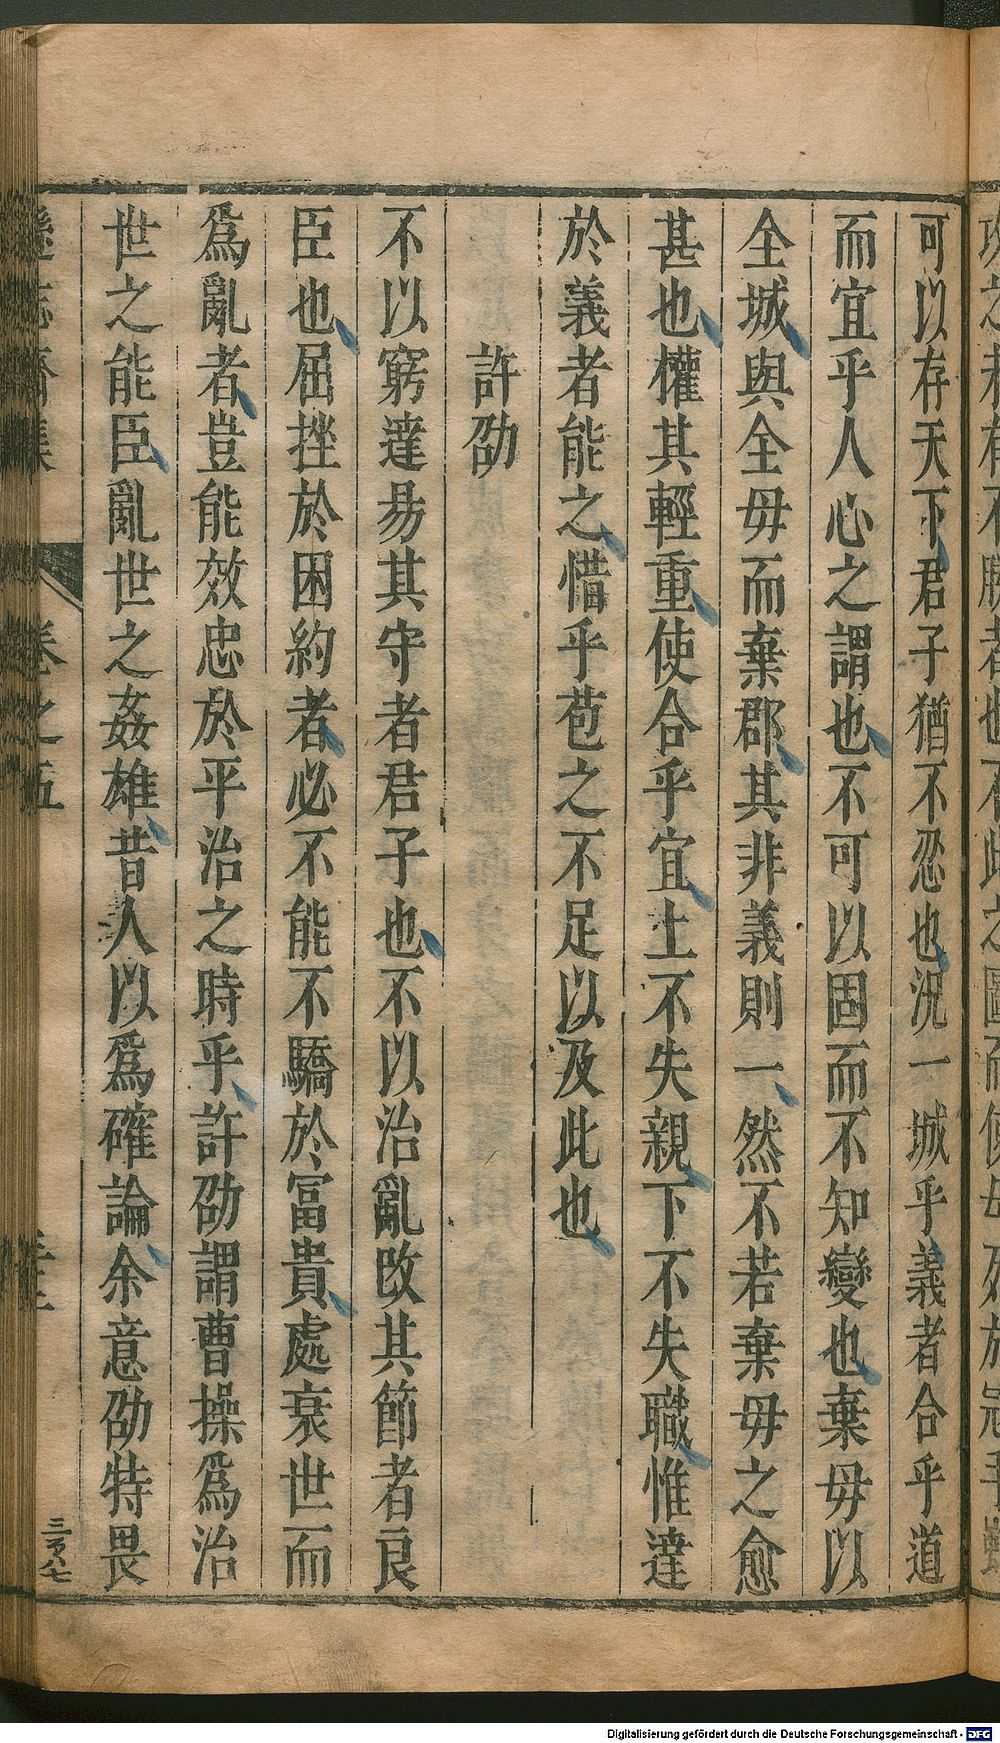 可以存天下君子猶不忍也況一城乎義者合乎道
而宜乎人心之謂也不可以固而不知變也棄毋以
全城與全毋而棄郡其非義則一然不若棄毋之愈
甚也權其輕重使合乎宜上不失親下不失職惟達
於義者能之惜乎苞之不足以及此也
許劭
不以窮達易其守者君子也不以治亂改其節者良
臣也屈挫於困約者必不能不驕於富貴處衰世而
為亂者豈能效忠於平治之時乎許劭謂曹操為治
世之能臣亂世之姦雄昔人以為確論余意劭特畏
卷之五
三百八七
Digitalisierung gefördert durch die Deutsche Forschungsgemeinschaft - DFG